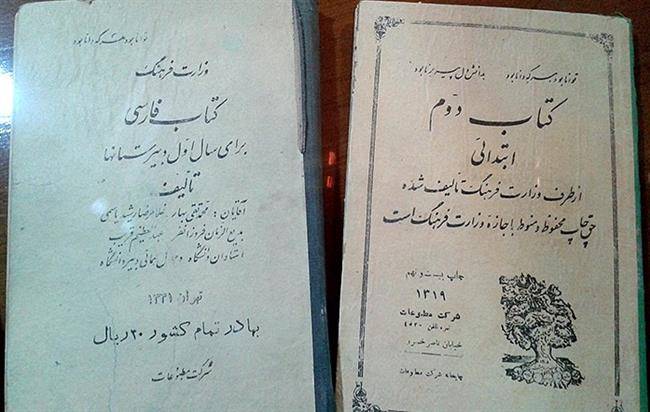 توانا بود هر که دانا بود
وزارت فرهنگ
کتاب فارسی
برای سال اول دبیرستانها
تألیف
آقایان: محمدتقی بهار غلامرضا رشید یاسمی
بدیع الزمان فروزانفر عبدالعظیم قریب
استادان دانشگاه و جلال همائی دبیر دانشگاه
تهران ۱۳۳۱
بها در تمام کشور ۲۰ ریال
شرکت مطبوعات
توانا بود هر که دانا بود بدانش دل پیر برنا بود
کتاب دوم
ابتدائی
از طرف وزارت فرهنگ تألیف شده
حق چاپ محفوظ و منوط با جازه وزارت فرهنگ است
چاپ بیست و نهم
۱۳۱۹
شرکت مطبوعات
نمره تلفن ۴۵۲۰
خیابان ناصر خسرو
چاپخانه شرکت مطبوعات